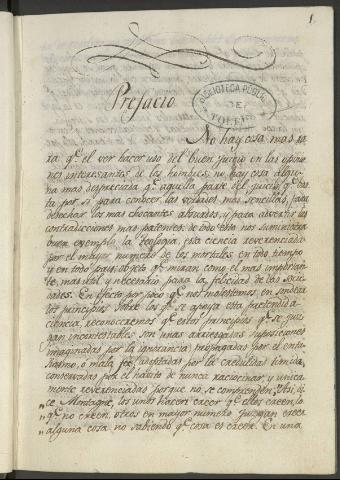 1.
Prefacio
BIBLIOTECA PUBLICA
DE
TOLEDO
No hay cosa mas ra-
ra q.e el ver hacer uso del buen juicio en las opinio-
nes interesantes a los hombres, no hay cosa algu-
na mas despreciada q.e aquella parte del juicio q.e bas-
ta por si para conocer las verdades mas sencillas, para
desechar los mas chocantes absurdos, y para advertir las
contradicciones mas patentes: de todo esto nos suministra
buen exemplo la teologia, esta ciencia reverenciada
por el mayor numero de los mortales en todo tiempo
y en todo pais, objeto q.e miran como el mas importan-
te, mas util y necesario para la felicidad de las socie-
dades. En efecto por poco q.e nos molestemos en sondear
los principios sobre los q.e se apoya esta pretendida
ciencia, reconoceremos q.e estos principios q.e se juz-
gan incontestables son unas arriesgadas suposiciones
imaginadas por la ignorancia, propagadas por el entu-
siasmo, o mala fe, adoptadas por la credulidad timida
conservadas por el habito de nunca raciocinar, y unica-
mente reverenciadas porque no se comprenden. Asi di-
ce Montagne, los unos hacen creer q.e ellos creen, lo
q.e no creen, otros en mayor numero juzgan creer
alguna cosa no sabiendo q.e cosa es creer. En una